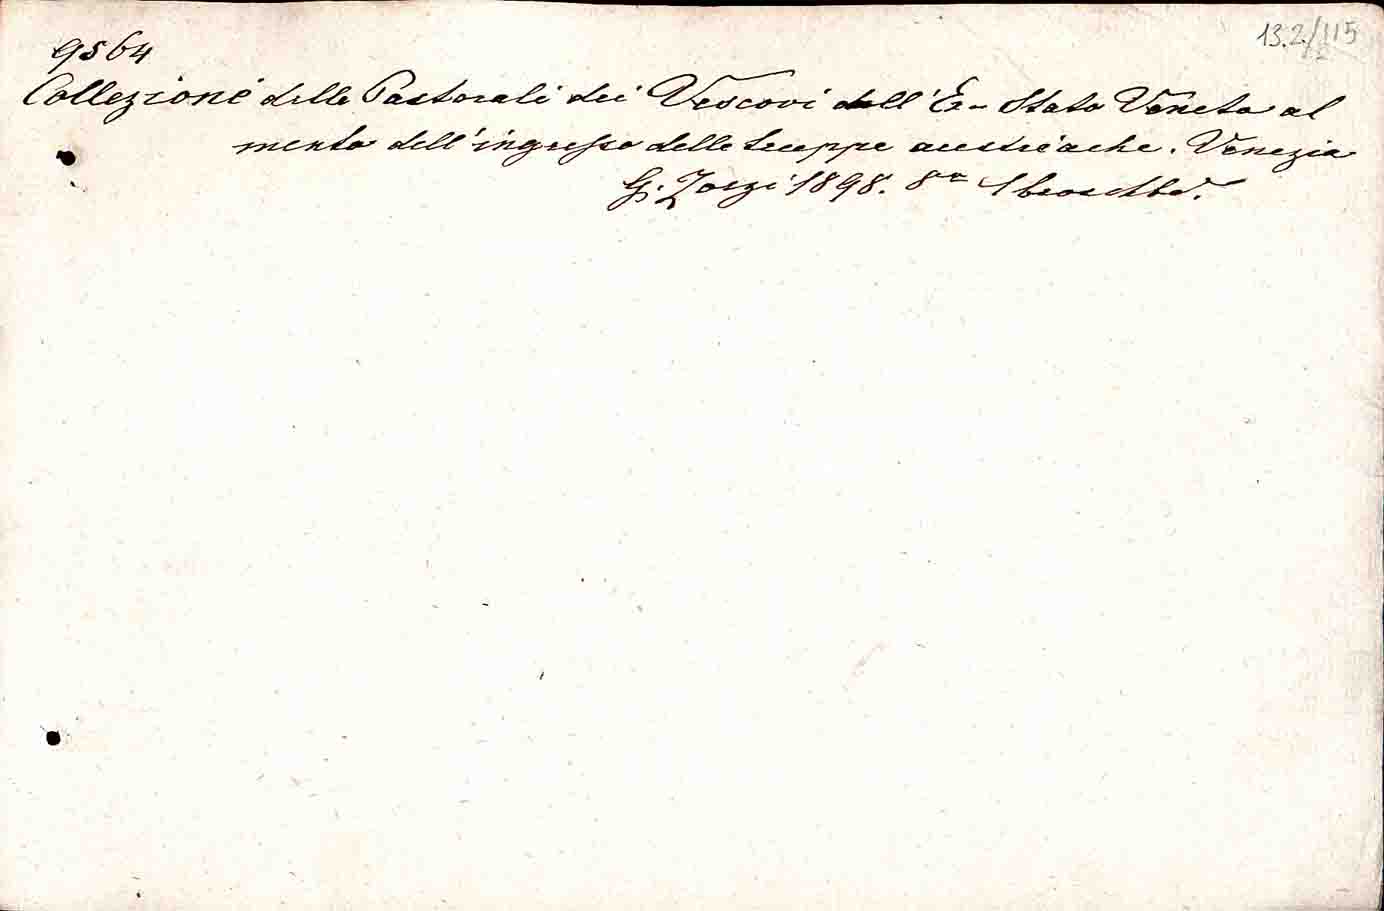 13.2/115
9564
Collezione delle Pastorali dei Vescovi dell' Ex-Stato Veneto al
mento dell' ingresso delle truppe austriache. Venezia
G. Zorzi 1898. 8°